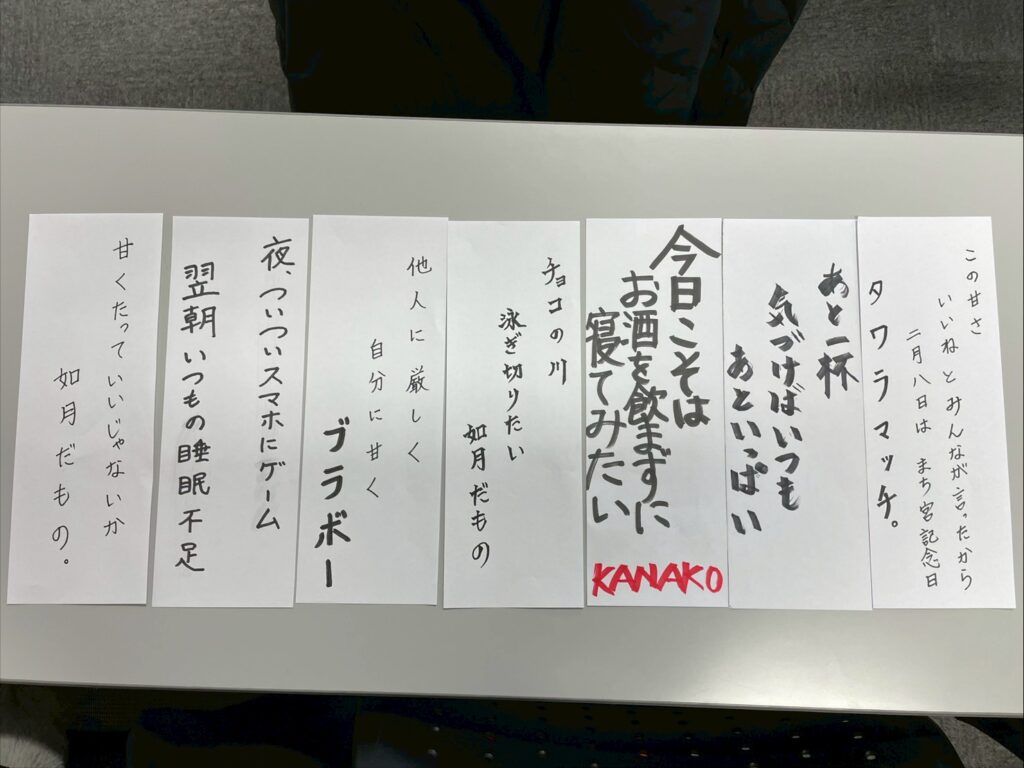 この甘さ
いいねとみんなが言ったから
二月八日は まち宮記念日
タワラマッチ。
あと一杯
気づけばいつも
あといっぱい
今日こそは
お酒を飲まずに
寝てみたい
KANAKO
チョコの川
泳ぎ切りたい
如月だもの
他人に厳しく
自分に甘く
ブラボー
夜、ついついスマホにゲーム
翌朝いつもの睡眠不足
甘くたっていいじゃないか
如月だもの。